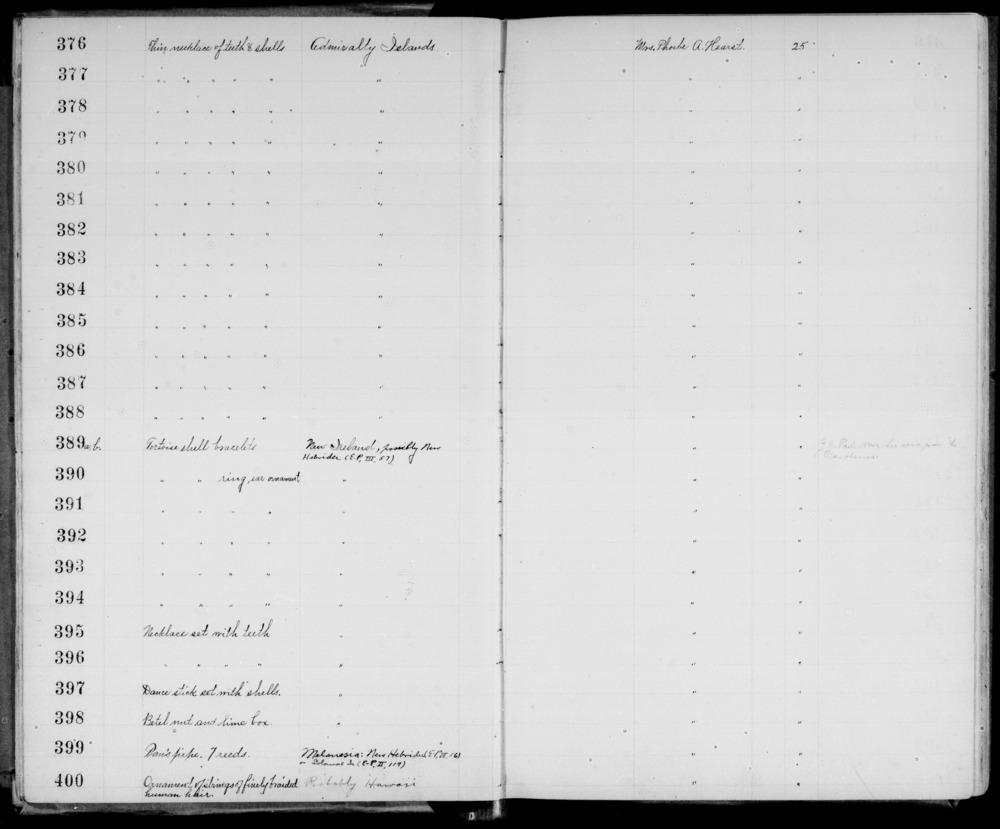 376 Thin necklace of teeth & shells Admiralty Islands. Mrs. Phoebe A. Hearst. 25
377 " " " " " " "
378 " " " " " " "
379 " " " " " " "
380 " " " " " " "
381 " " " " " " "
382 " " " " " " "
383 " " " " " " "
384 " " " " " " "
385 " " " " " " "
386 " " " " " " "
387 " " " " " " "
388 " " " " " " "
389 a.b. Tortoise shell bracelets New Ireland, possibly New " "
Hebrides (E-P, III, 57)
390 " " ring, ear ornament, " " "
391 " " " " " " "
392 " " " " " " "
393 " " " " " " "
394 " " " " " " "
395 Necklace set with teeth " " "
396 " " " " " " "
397 Dance stick set with shells. " " "
398 Betel nut and lime box. " " "
399 Pan's pipe. 7 reeds. Melanesia: New Hebrides " "
(E-P, II, 119)
400 Ornament of strings of finely braided Probably Hawaii " "
human hair.